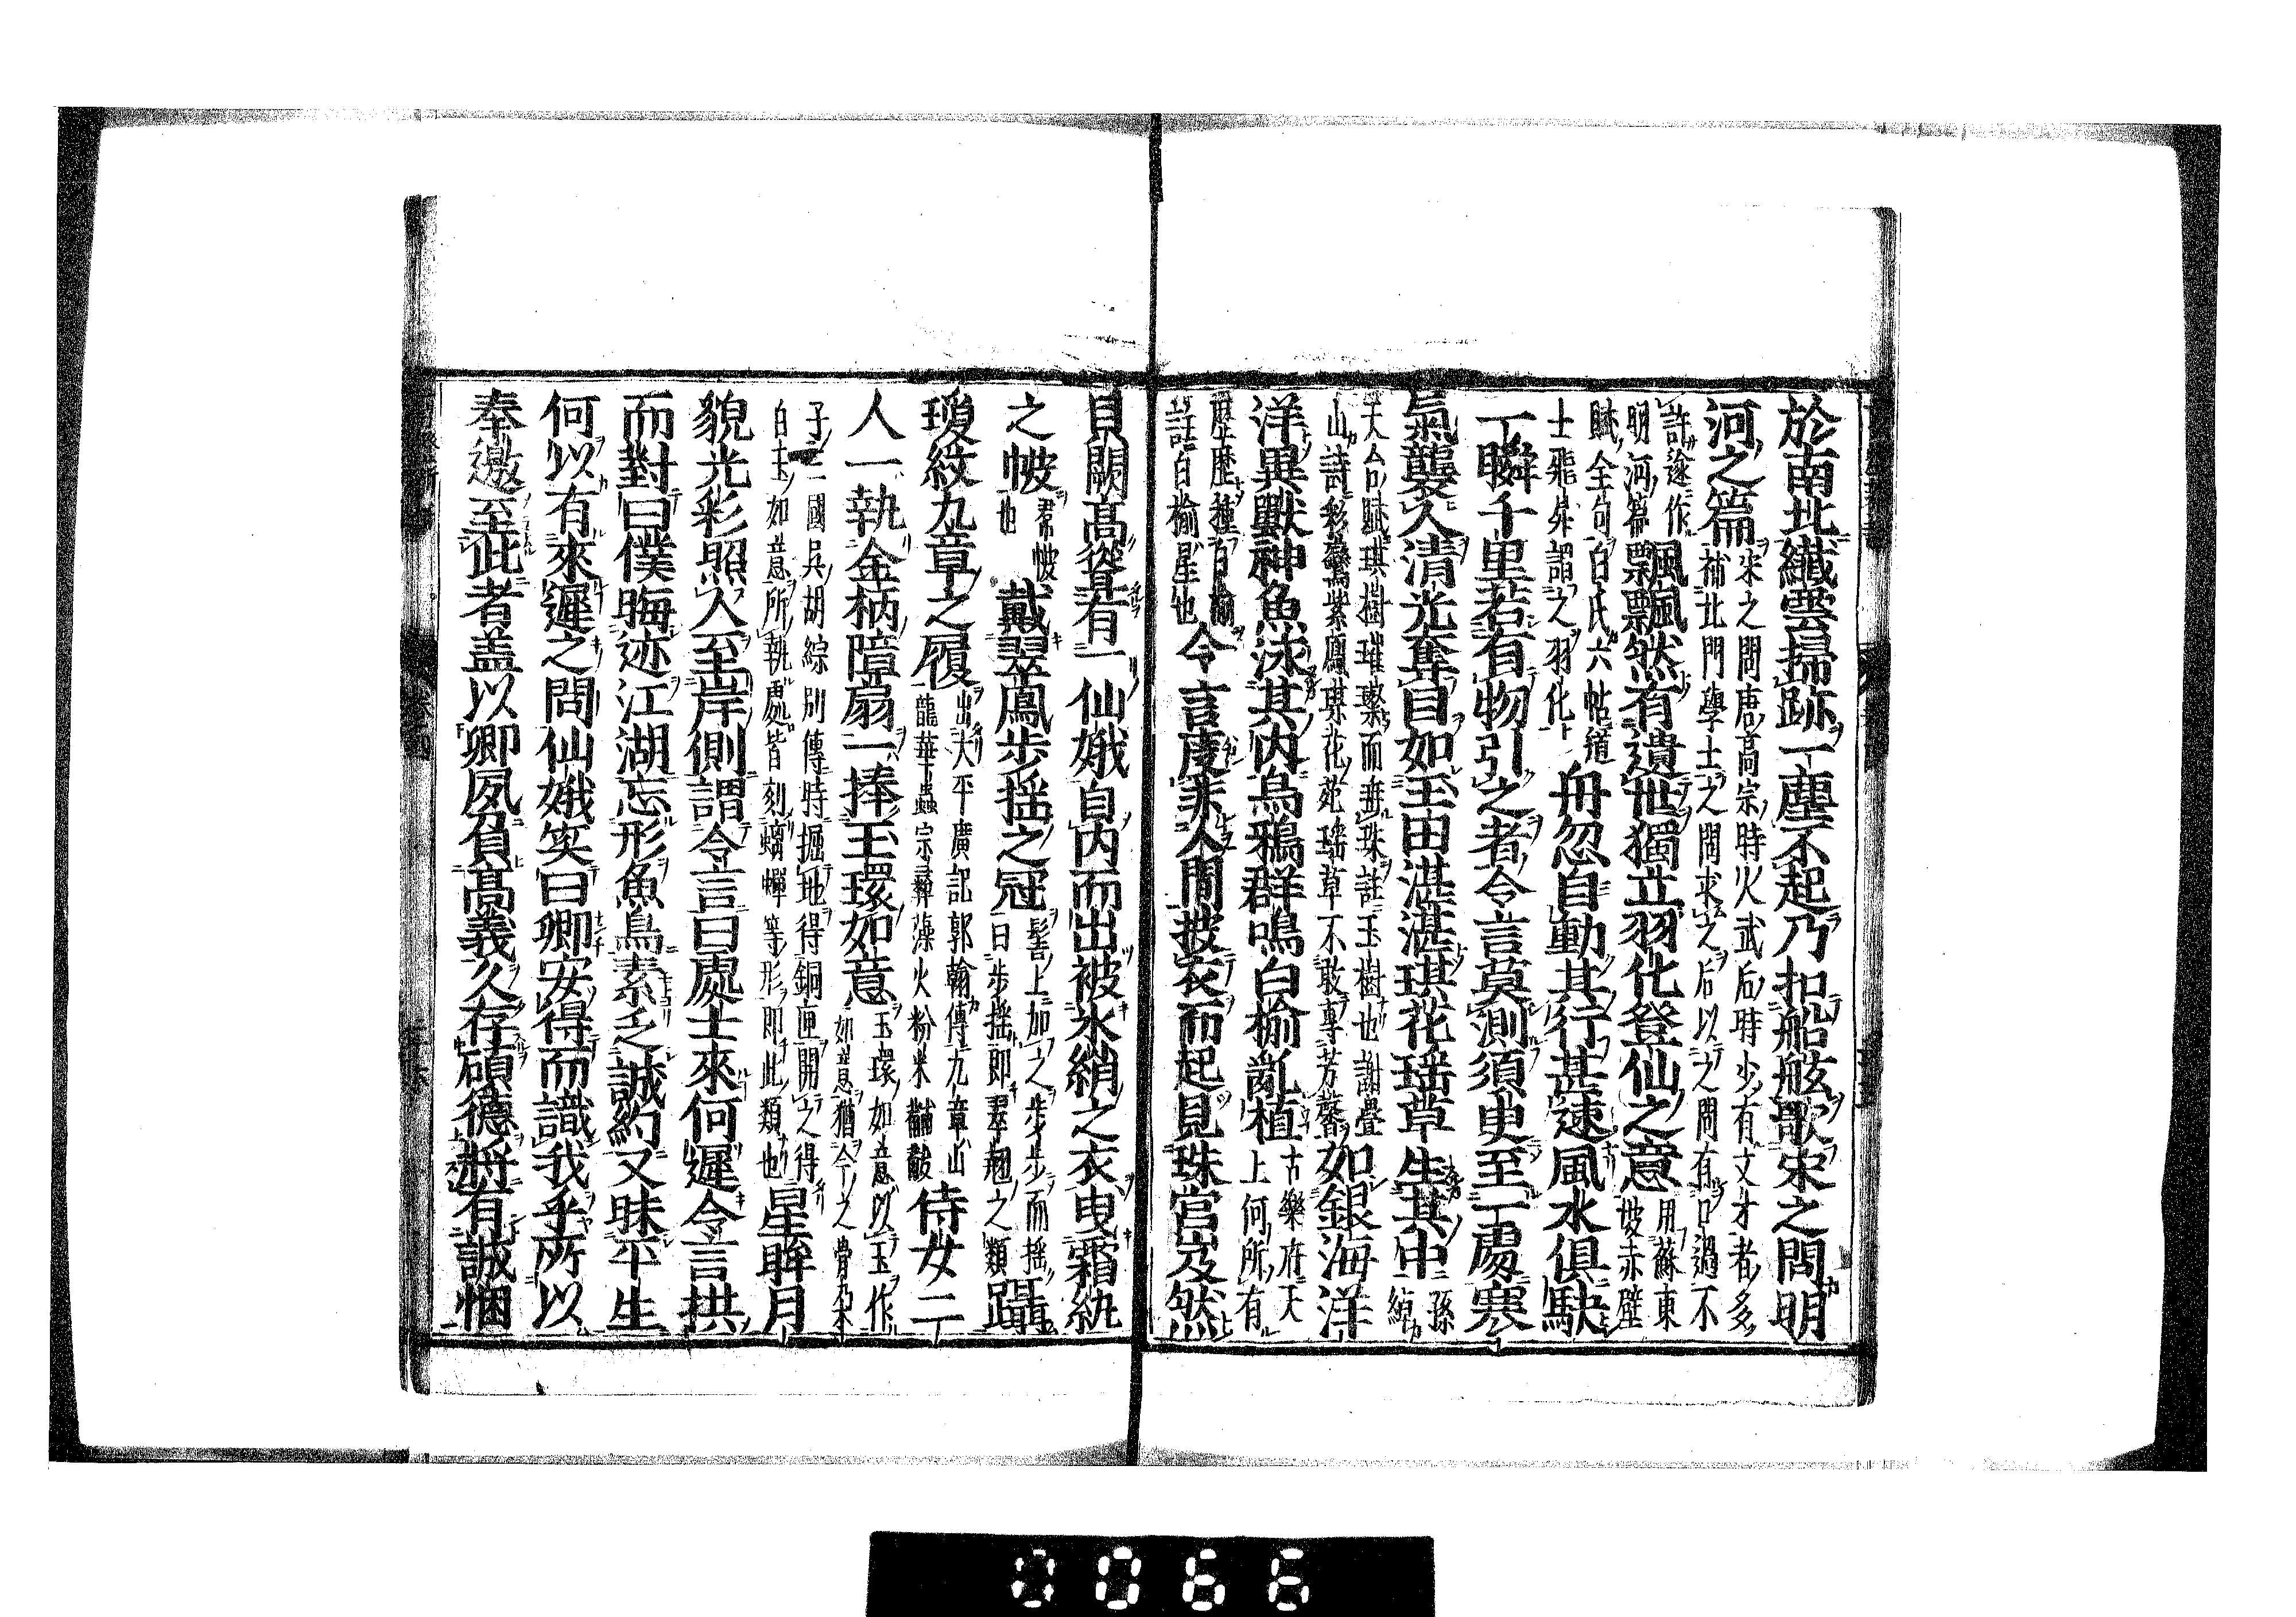 於南北纎雲掃跡一塵不起乃扣船舷歌宋之問明
河之篇宋之問唐高宗時火武后時少有文才者多
補北門學士之問求之后以之問有口過不
許遂作
明河篇飄飄然有遺世獨立羽化登仙之意用蘇東
坡赤壁
賦全句白氏六帖道
士飛舁謂之羽化舟忽自動其行甚速風水俱駃
一瞬千里若有物引之者令言莫測須臾至一處寒
氣襲人清光奪目如玉田湛湛琪花瑶草生其中孫
綽
天台賦琪樹璀璨而垂珠註玉樹也謝疊
山詩彩鸞紫鳳琪花苑瑶草不敢專芳馨如銀海洋
洋異獸神魚泳其内烏鴉群鳴白榆亂植古樂府天
上何所有
歴歴種白榆
註白榆星也令言度非人間披衣而起見珠宮岌然
貝闕高聳有一仙娥自内而出被氷綃之衣曳霜紈
之帔帬帔
也戴翠鳳步揺之冠髻上加之步步而揺
曰步揺即翠翹之類躡
瓊紋九章之履出大平廣記郭翰傳九章山
龍華蟲宗彜藻火粉米黼黻侍女二
人一執金柄障扇一捧玉環如意玉環如意以玉作
如意猶今之骨朶
子三國呉胡綜別傳時掘地得銅匣開之得
白玉如意所執處皆刻螭蟬等形即此類也星眸月
貌光彩照人至岸側謂令言曰處士來何遲令言拱
而對曰僕晦迹江湖忘形魚鳥素乏誠約又昧平生
何以有來遲之問仙娥笑曰卿安得而識我乎所以
奉邀至此者盖以卿夙負髙義久存碩德將有誠悃
0066